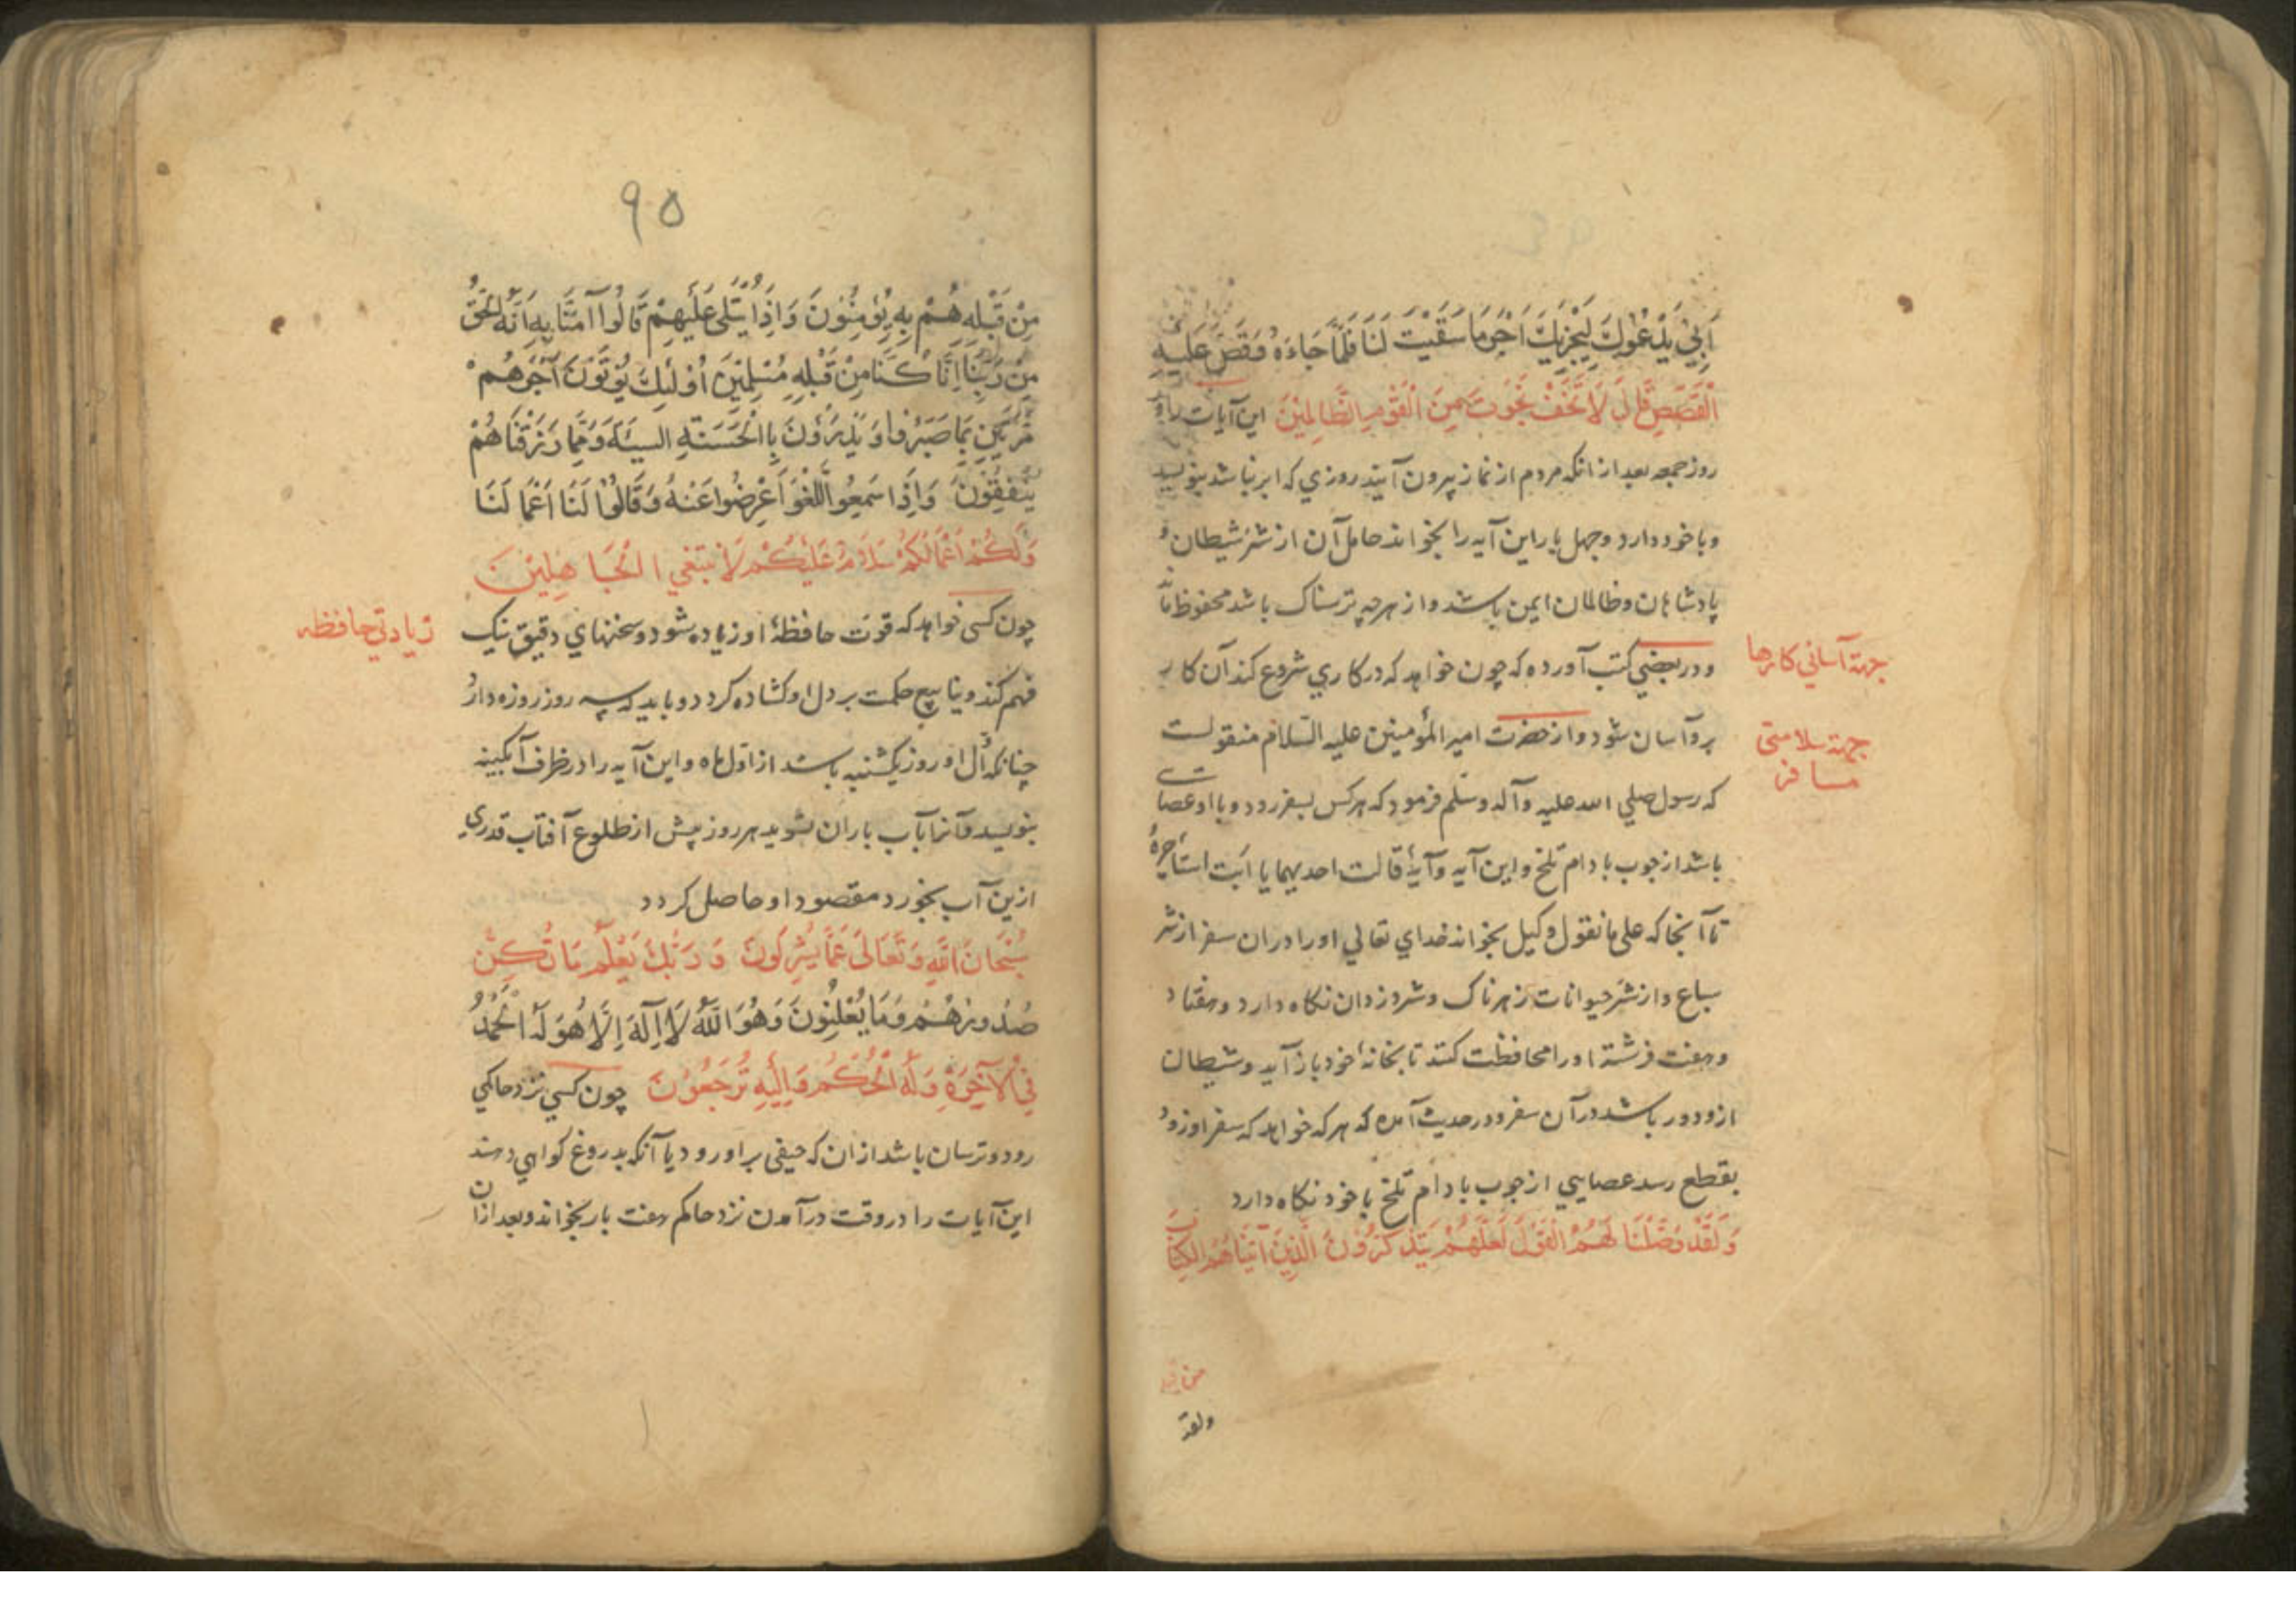 اَبِيْ يَدْعُوكَ لِيَجْزِيَكَ اَجْرَ مَا سَقَيْتَ لَنَا فَلَمَّا جَاءَهُ وَقَصَّ عَلَيْهِ
الْقَصَصَ قَالَ لَا تَخَفْ نَجَوْتَ مِنَ الْقَوْمِ الظَّالِمِيْنَ این آیات را در
روز جمعه بعد از انکه مردم از نماز بیرون آیند روزي که ابر نباشد بنویسد
و با خود دارد و چهل بار این آیه را بخواند حامل آن از شر شیطان و
پادشاهان و ظالمان ایمن باشد و از هرچه ترسناک باشد محفوظ ماند
و در بعضي کتب آورده که چون خواهد که در کاري شروع کند آن کار
جهة آساني کارها
برو آسان شود و از حضرت امیر المؤمنین علیه السّلام منقولست
جهة سلامتی
مسافر
که رسول صلي الله علیه وآله وسلّم فرمود که هر کس بسفر رود و با او عصایی
باشد از چوب بادام تلخ و این آیه و آیهٔ قالت احدیهما یا ابت استأجرهُ
تا آنجا که علی ما نقول وکیل بخواند خداي تعالي او را در ان سفر از شر
سباع و از شرّ حیوانات زهرناک و شر دزدان نکاه دارد و هفتاد
و هفت فرشته او را محافظت کنند تا بخانهٔ خود باز آید و شیطان
ازو دور باشد در آن سفر و در حدیث آمده که هر که خواهد که سفر او زود
بقطع رسد عصایي از چوب بادام تلخ با خود نکاه دارد
وَلَقَدْ وَصَّلْنَا لَهُمُ الْقَوْلَ لَعَلَّهُمْ يَتَذَكَّرُوْنَ الَّذِيْنَ آتَيْنَاهُمُ الْكِتَابَ
من قبله
ولقد
٩٥
مِنْ قَبْلِهِ هُمْ بِهِ يُؤْمِنُوْنَ وَاِذَا يُتْلَى عَلَيْهِمْ قَالُوا آمَنَّا بِهِ اَنَّهُ الْحَقُّ
مِنْ رَبِّنَا اِنَّا كُنَّا مِنْ قَبْلِهِ مُسْلِمِيْنَ اُوْلٰئِكَ يُؤْتَوْنَ اَجْرَهُمْ
مَرَّتَيْنِ بِمَا صَبَرُوا وَيَدْرَؤُنَ بِالْحَسَنَةِ السيئة وَمِمَّا رَزَقْنَاهُمْ
يُنْفِقُوْنَ وَاِذَا سَمِعُوا اللَّغْوَ اَعْرَضُوا عَنْهُ وَقَالُوْا لَنَا اَعْمَالَنَا
وَلَكُمْ اَعْمَالُكُمْ سَلَامٌ عَلَيْكُمْ لَا نَبْتَغي الْجَاهِلِيْنَ
زیادتي حافظه
چون کسی خواهد که قوت حافظهٔ او زیاده شود و سخنهاي دقیق نیک
فهم کند و ینابیع حکمت بر دل او کشاده کردد و باید که سه روز روزه دارد
چنانکه اوّل او روز یکشنبه باشد از اول ماه و این آیه را در ظرف آبکینه
بنویسد و آنرا بآب باران بشوید هر روز پیش از طلوع آفتاب قدري
ازین آب بخورد مقصود او حاصل کردد
سُبْحَانَ اللهِ وَتَعَالَى عَمَّا يُشْرِكُوْنَ وَرَبُّكَ يَعْلَمُ مَا تُكِنُّ
صُدُورُهُمْ وَمَا يُعْلِنُونَ وَهُوَ اللهُ لَا اِلَهَ اِلَّا هُوَ لَهُ الْحَمْدُ
فِي الْآخِرَةِ وَلَهُ الْحُكْمُ وَاِلَيْهِ تُرْجَعُوْنَ چون کسي نزد حاکمي
رود و ترسان باشد از ان که حیفی بر او رود یا آنکه بدروغ کواهي دهند
این آیات را در وقت درآمدن نزد حاکم هفت بار بخواند و بعد از ان